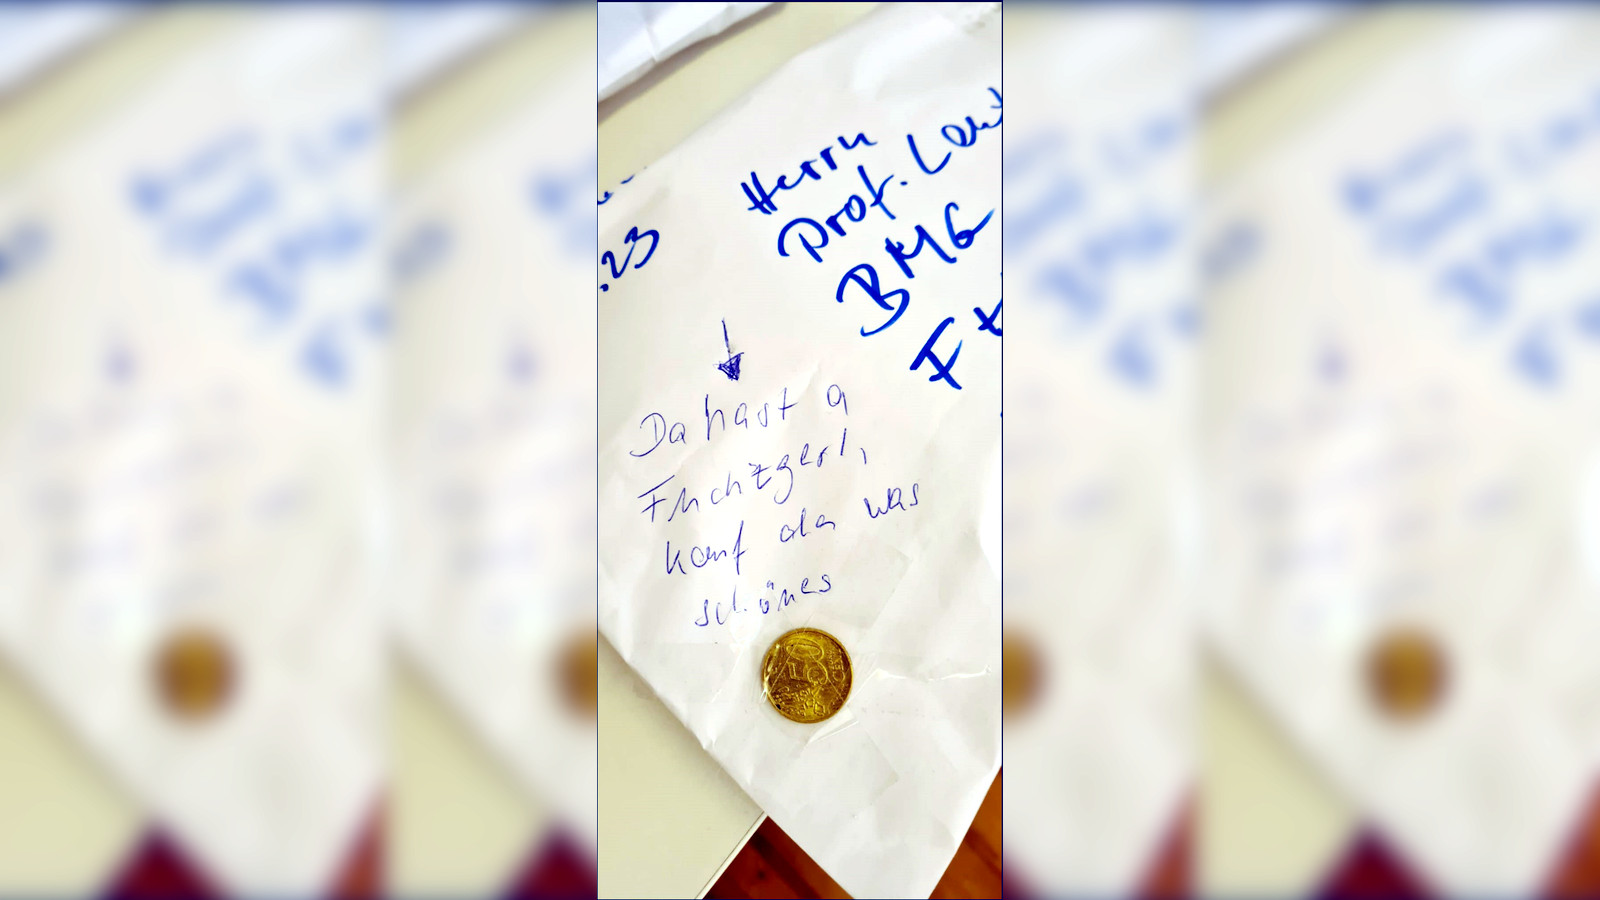 Herrn
Prof. Laut
BMG
.23
Da hast a
Fuchzgerl,
kauf da was
schönes
50